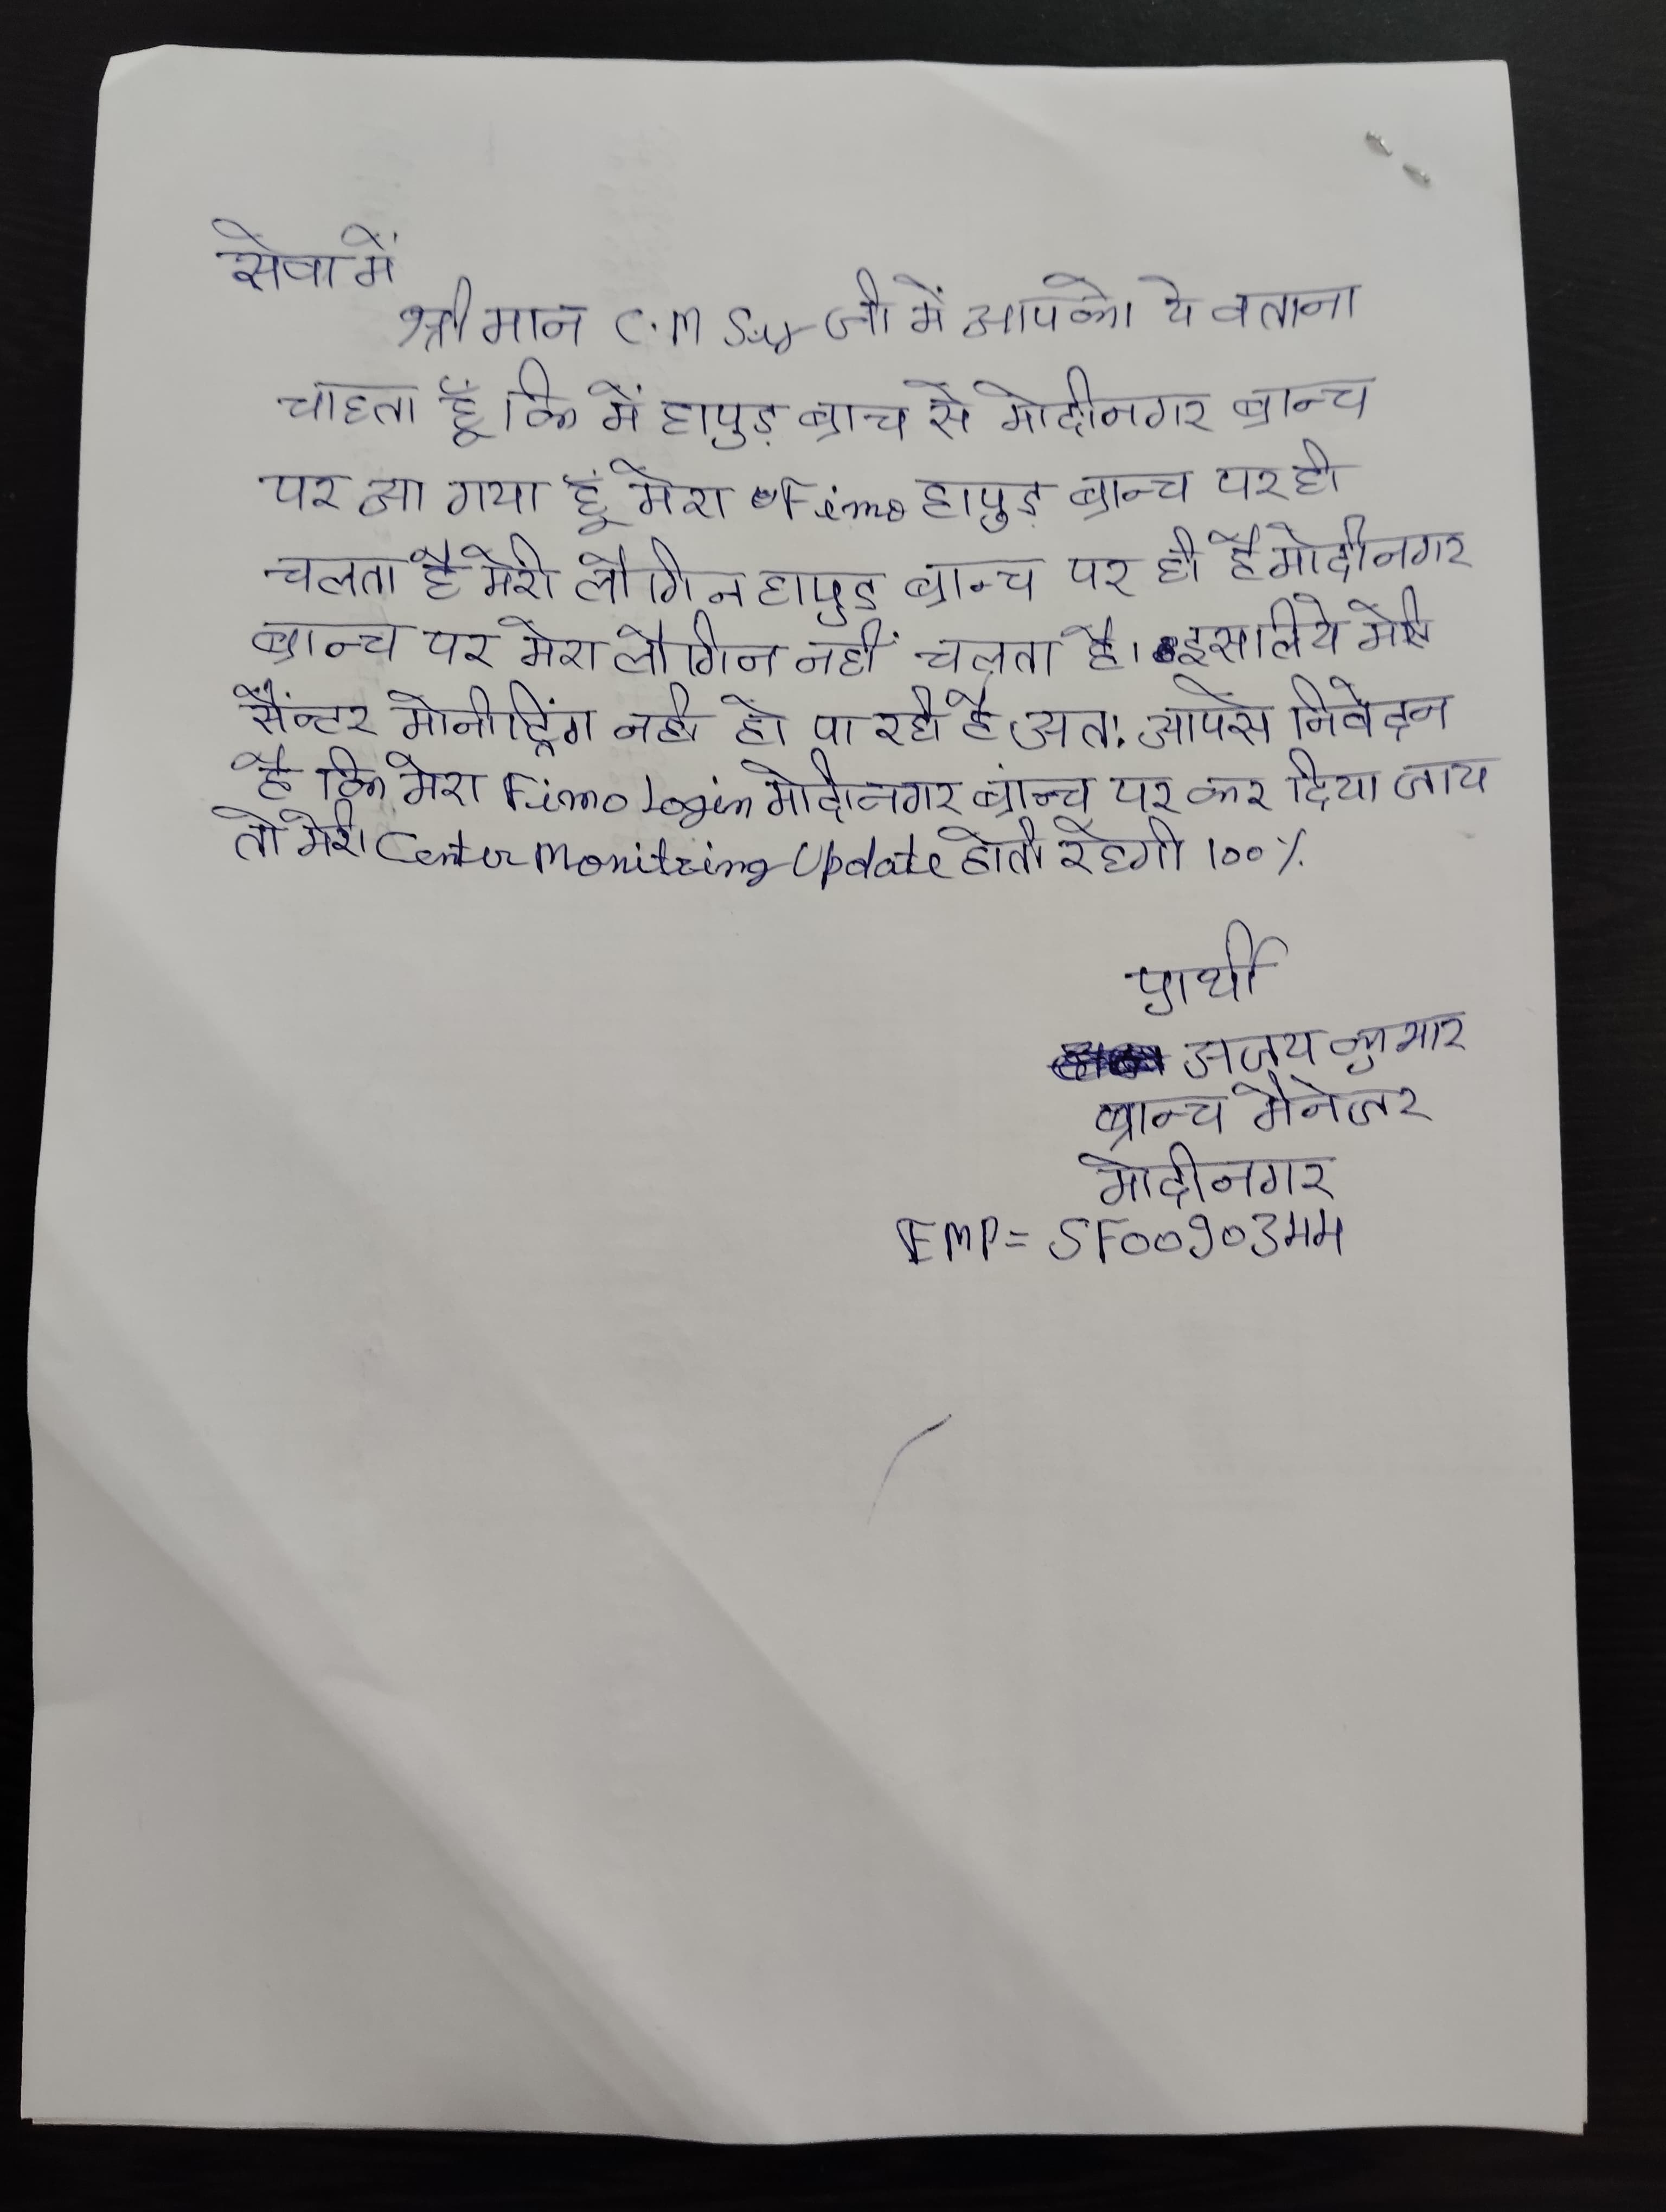 सेवा में
श्रीमान C.M Sir जी में आपको ये बताना
चाहता हूँ कि में हापुड़ ब्राच से मोदीनगर ब्रान्च
पर आ गया हूं मेरा Fimo हापुड़ ब्रान्च पर ही
चलता है मेरी लौगिन हापुड़ ब्रान्च पर ही है मोदीनगर
ब्रान्च पर मेरा लौगिन नहीं चलता है। इसलिये मेरी
सैंन्टर मोनीट्रिंग नही हो पा रही है अतः आपसे निवेदन
है कि मेरा Fimo Login मोदीनगर ब्रांन्च पर कर दिया जाय
तो मेरी Center Monitring Update होती रहेगी 100%
प्रार्थी
अजय कुमार
ब्रान्च मैनेजर
मोदीनगर
EMP = SF0090344